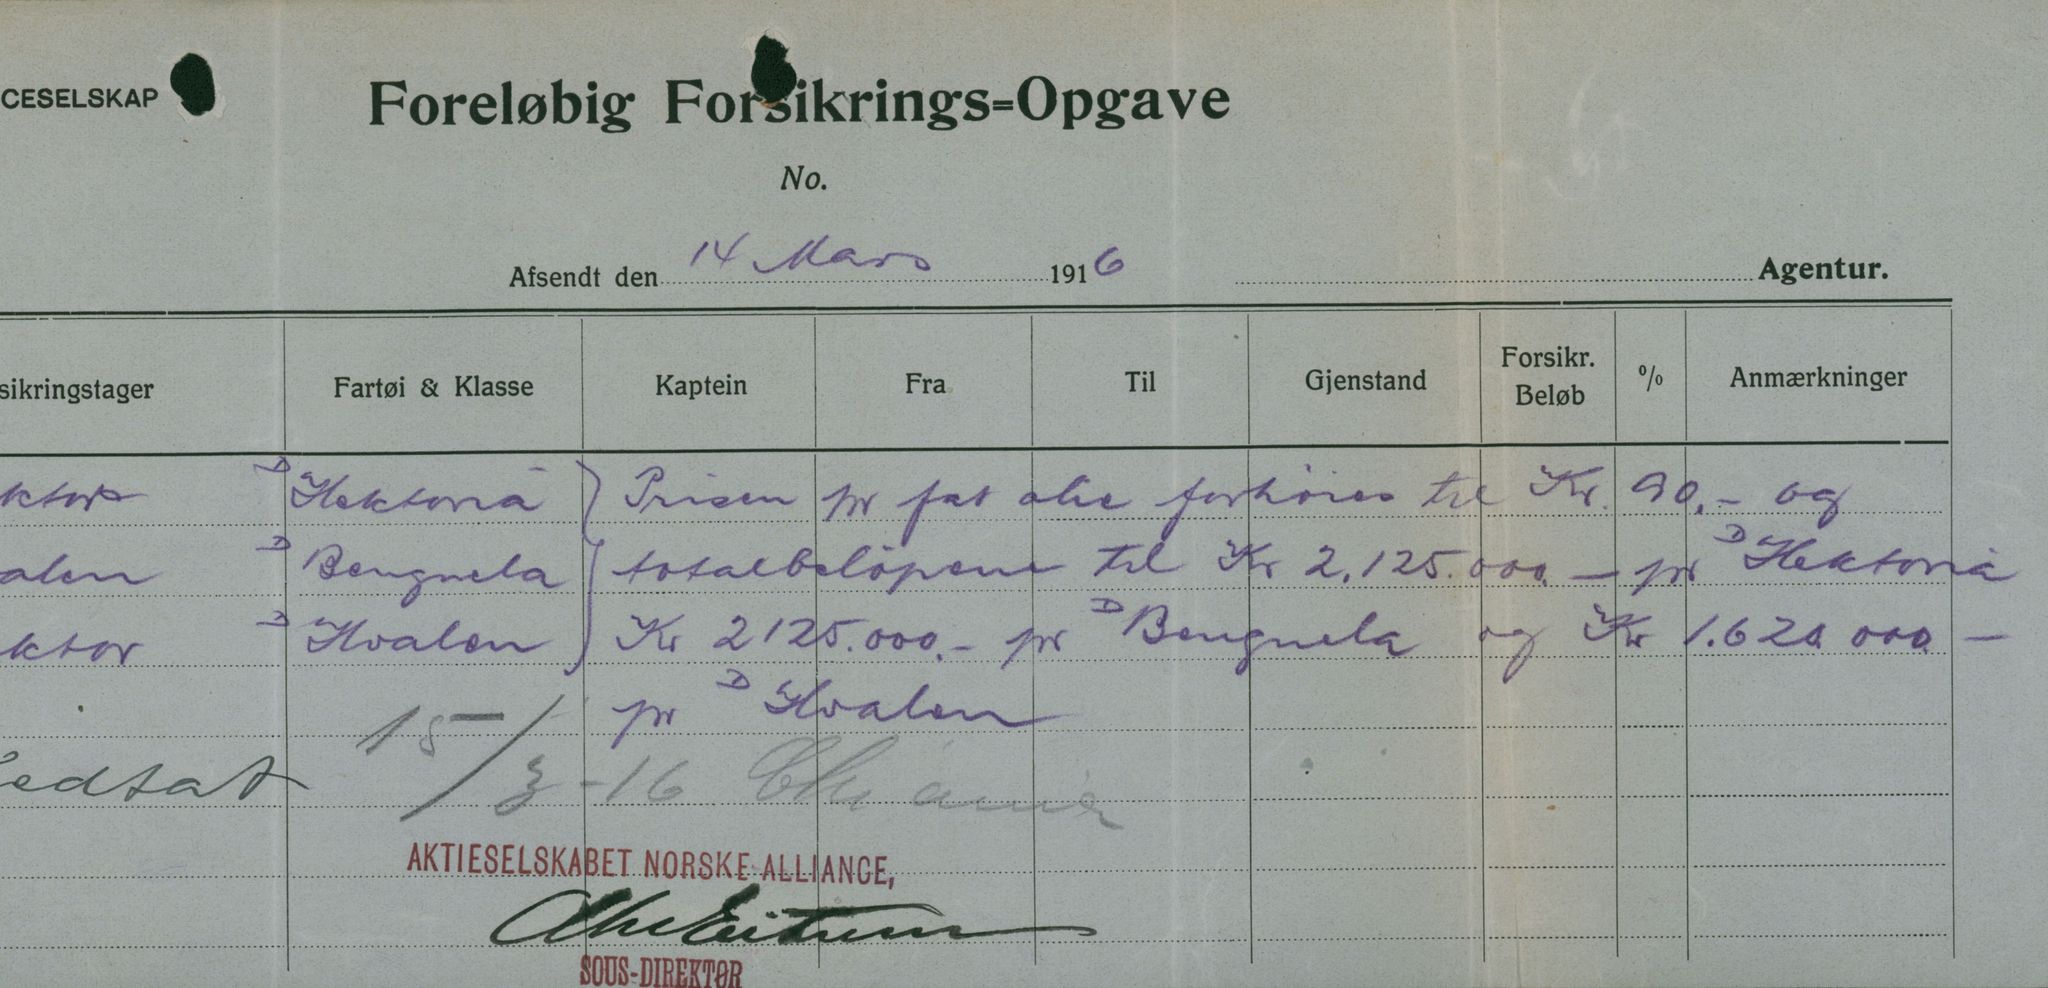 CESELSKAP
Foreløbig Forsikrings=Opgave
No.
Afsendt den 14 Mars 1916 Agentur.
sikringstager Fartøi & Klasse Kaptein Fra Til Gjenstand Forsikr. Beløb % Anmærkninger
ktor D Hektoria Prisen pr fat olie forhöies til Kr. 90.- og
alen D Benguela totalbelöpene til Kr 2.125.000.- pr D Hektoria
ktor D Hvalen Kr 2125.000.- pr D Benguela og Kr 1.620.000 -
pr D Hvalen
edtat 15/3-16 Chr.ania
AKTIESELSKABET NORSKE ALLIANCE,
SOUS-DIREKTØR